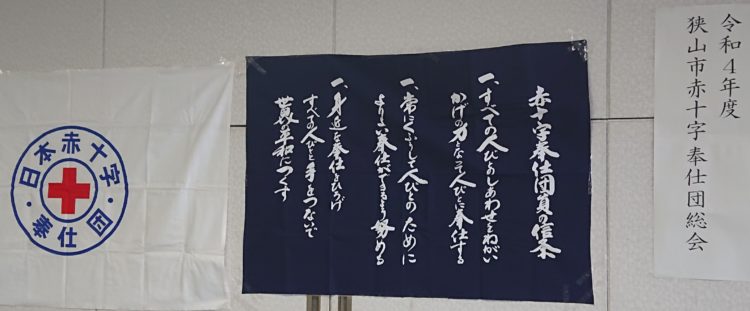 令和4年度
狭山市赤十字奉仕団総会
赤十字奉仕団員の信条
一、すべての人びとのしあわせをねがい
かげの力となって人びとに奉仕する
一、常にくふうして人びとのために
よりよい奉仕ができるよう努める
一、身近な奉仕をひろげ
すべての人びとと手をつないで
世界の平和につくす
・日本赤十字・
奉仕団